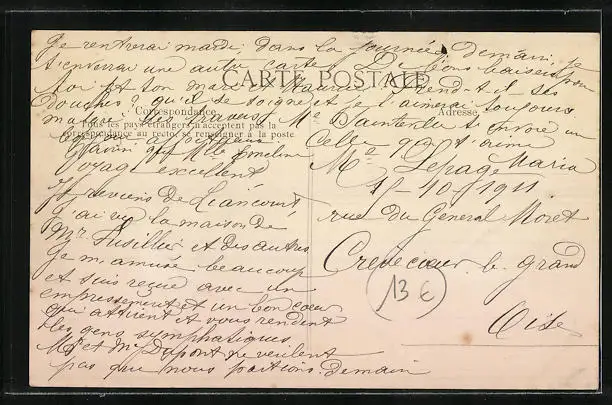 Je rentrerai mardi dans la journée demain, je
t'enverrai une autre carte. De bons baisers pour
toi et ton mari Maurice prend-t-il ses
douches? qu'il se soigne et je l'aimerai toujours
malgré
CARTE POSTALE
Correspondance
Tous les pays étrangers n'acceptent pas la
correspondance au recto se renseigner à la poste
Adresse
Melle Emeline
Voyage excellent
Je reviens de Liancourt
J'ai vu la maison de
Mr Fusillier et des autres
Je m'amuse beaucoup
et suis reçue avec un
empressement et un bon cœur
qui attirent et vous rendent
les gens sympathiques.
Mr et Me Dupont ne veulent
pas que nous partions demain
t'envoie un
Celle qui t'aime
Me Lepage Maria
15-10-1911
rue du General Moret
Crevecœur le grand
Oise
13 €